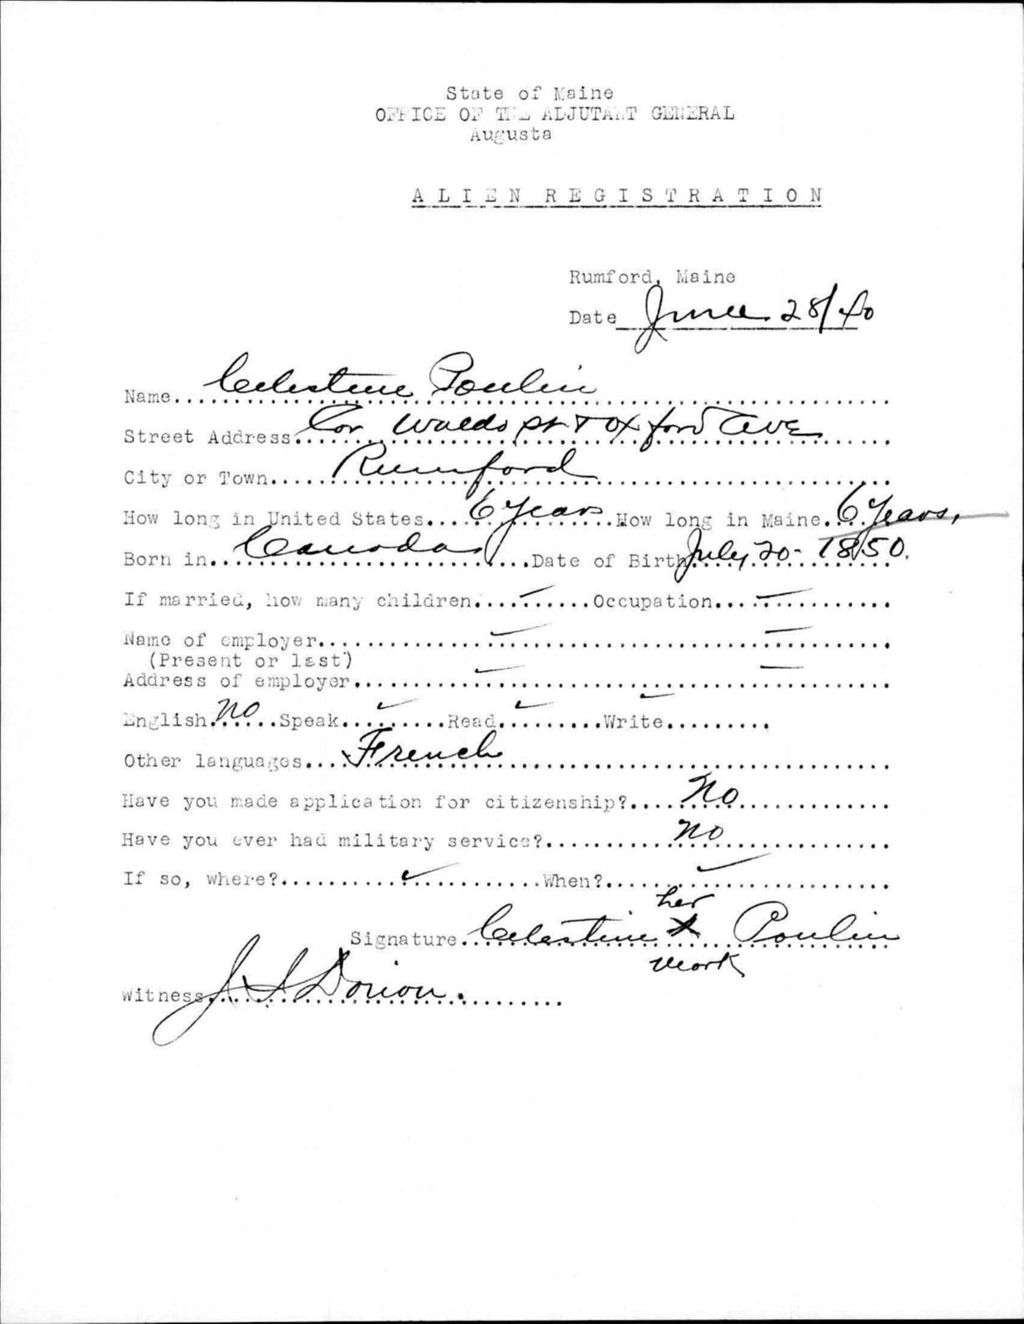 State of Maine
OFFICE OF THE ADJUTANT GENERAL
Augusta
ALIEN REGISTRATION
Rumford, Maine
Date June 28/40
Name Celestine Poulin
Street Address Cor Waldo St & Oxford Ave
City or Town Rumford
How long in United States 6 years How long in Maine 6 years,
Born in Canada Date of Birth July 20 - 1850.
If married, how many children Occupation
Name of employer
(Present or last)
Address of employer
English No Speak Read Write
Other languages French
Have you made application for citizenship? No
Have you ever had military service? No
If so, where? When?
her
Signature Celestine X Poulin
mark
Witness J S Dorion.